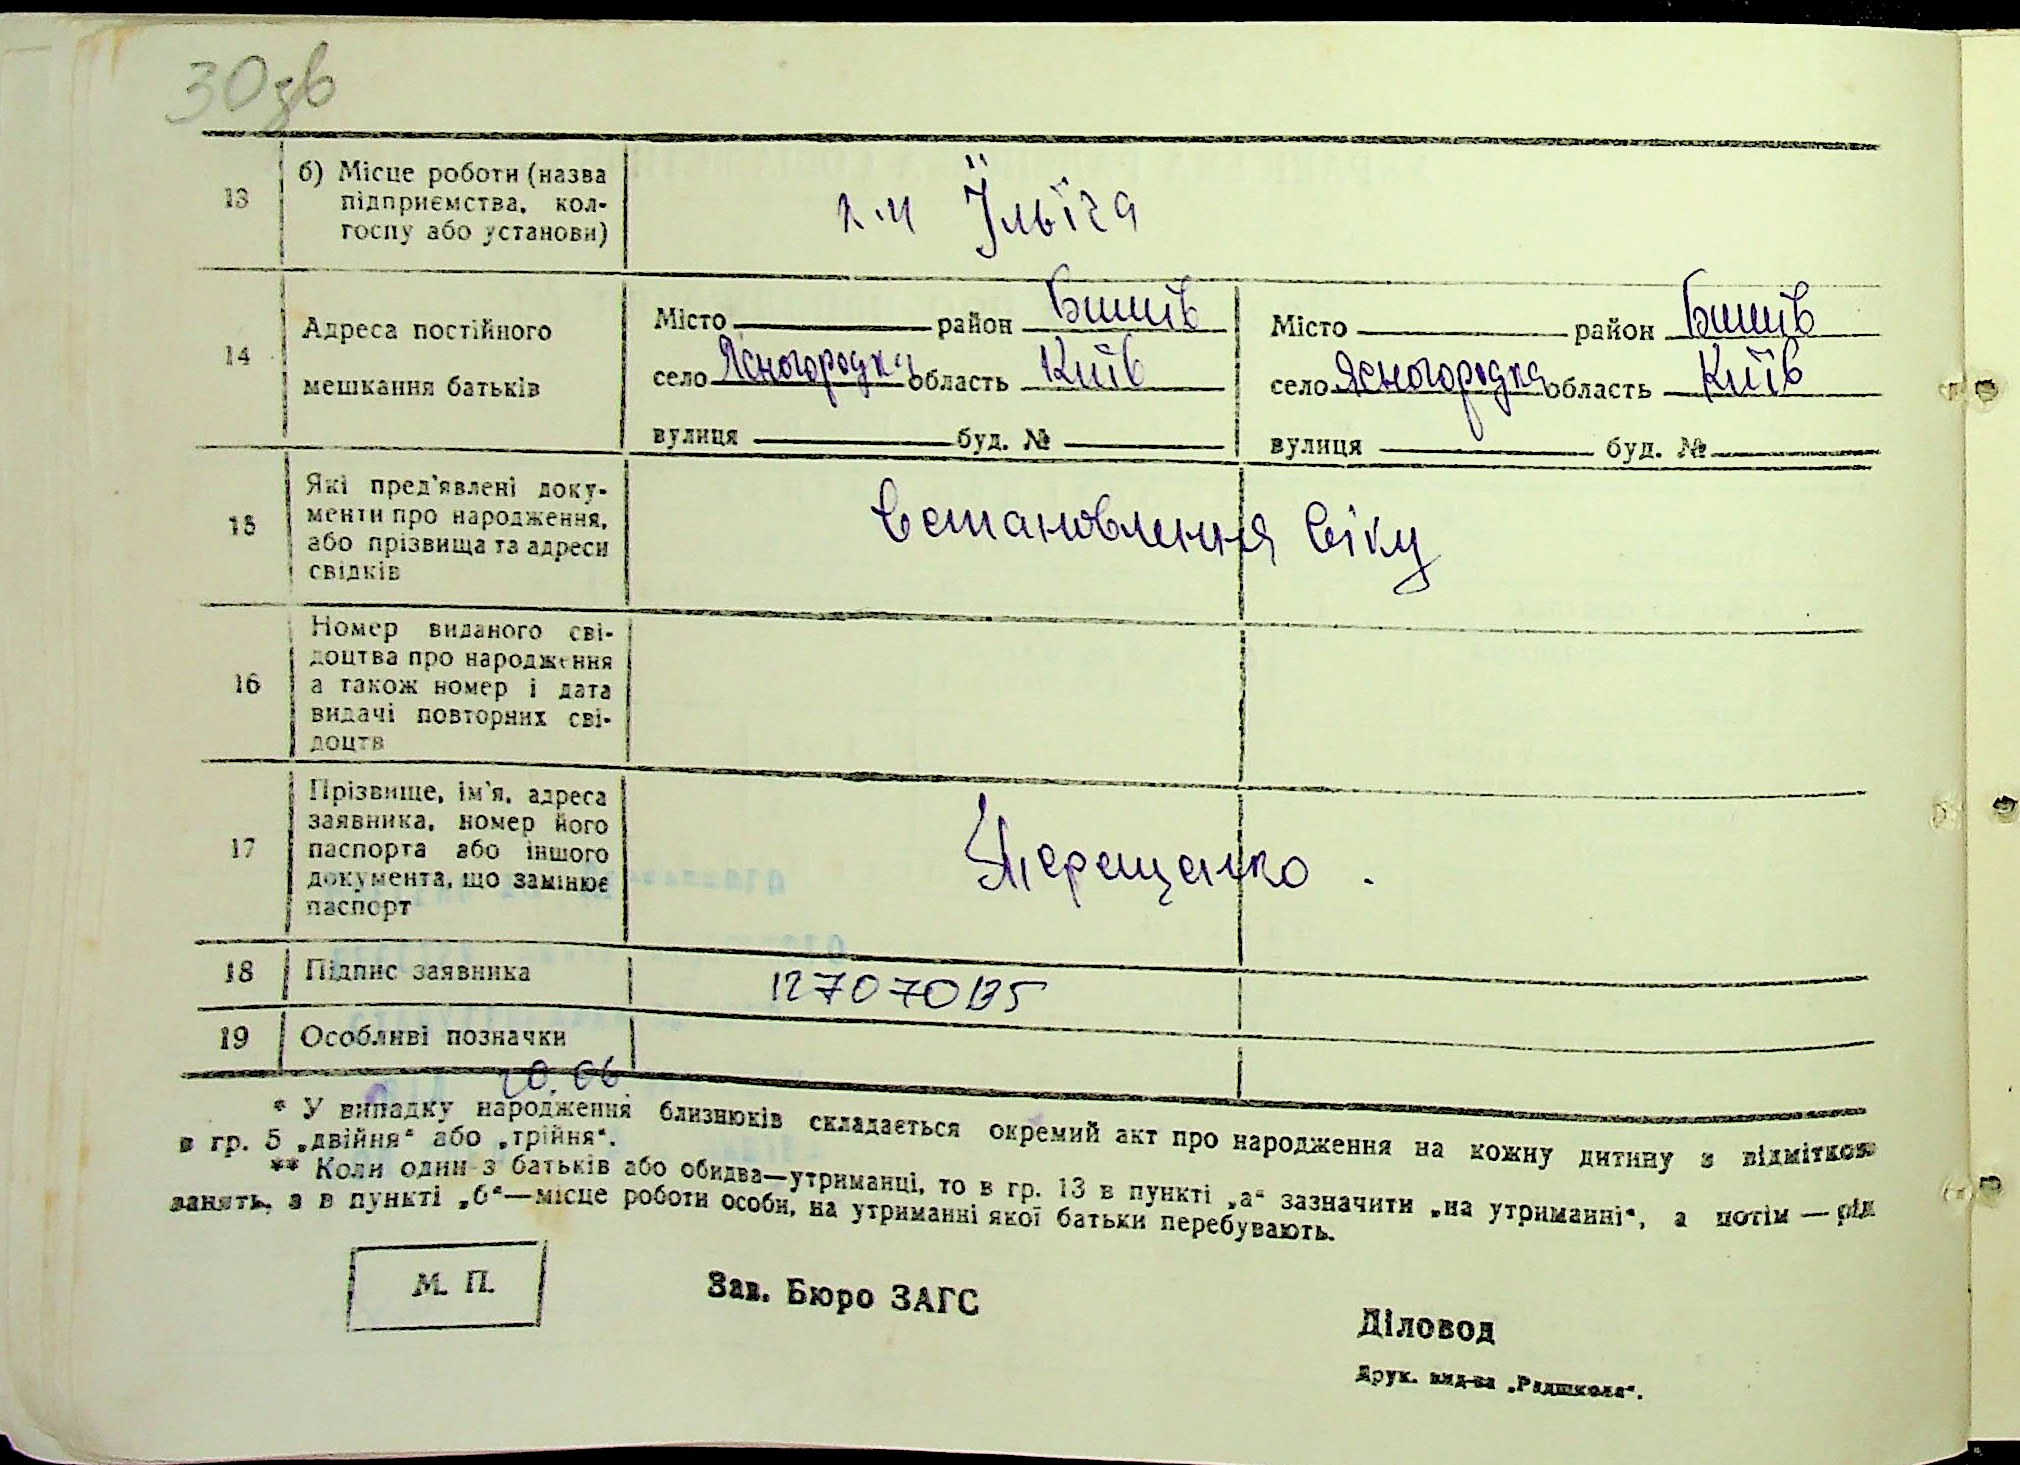 30зв
13 б) Місце роботи (назва
підприємства, кол-
госпу або установи)
к.м Їльїча
14 Адреса постійного
мешкання батьків
Місто район Бишів
село Ясногородка область Київ
вулиця буд. №
Місто район Бишів
село Ясногородка область Київ
вулиця буд. №
15 Які пред'явлені доку-
менти про народження,
або прізвища та адреси
свідків
Встановлення віку
16 Номер виданого сві-
доцтва про народження
а також номер і дата
видачі повторних сві-
доцтв
17 Прізвище, ім'я, адреса
заявника, номер його
паспорта або іншого
документа, що замінює
паспорт
Терещенко.
18 Підпис заявника
19 Особливі позначки
20.06
* У випадку народження близнюків складається окремий акт про народження на кожну дитину з відміткою
в гр. 5 „двійня“ або „трійня“.
** Коли один з батьків або обидва—утриманці, то в гр. 13 в пункті „а“ зазначити „на утриманні“, а потім — рід
занять, а в пункті „б“—місце роботи особи, на утриманні якої батьки перебувають.
М. П.
Зав. Бюро ЗАГС
Діловод
Друк. вид-ва „Радшкола“.